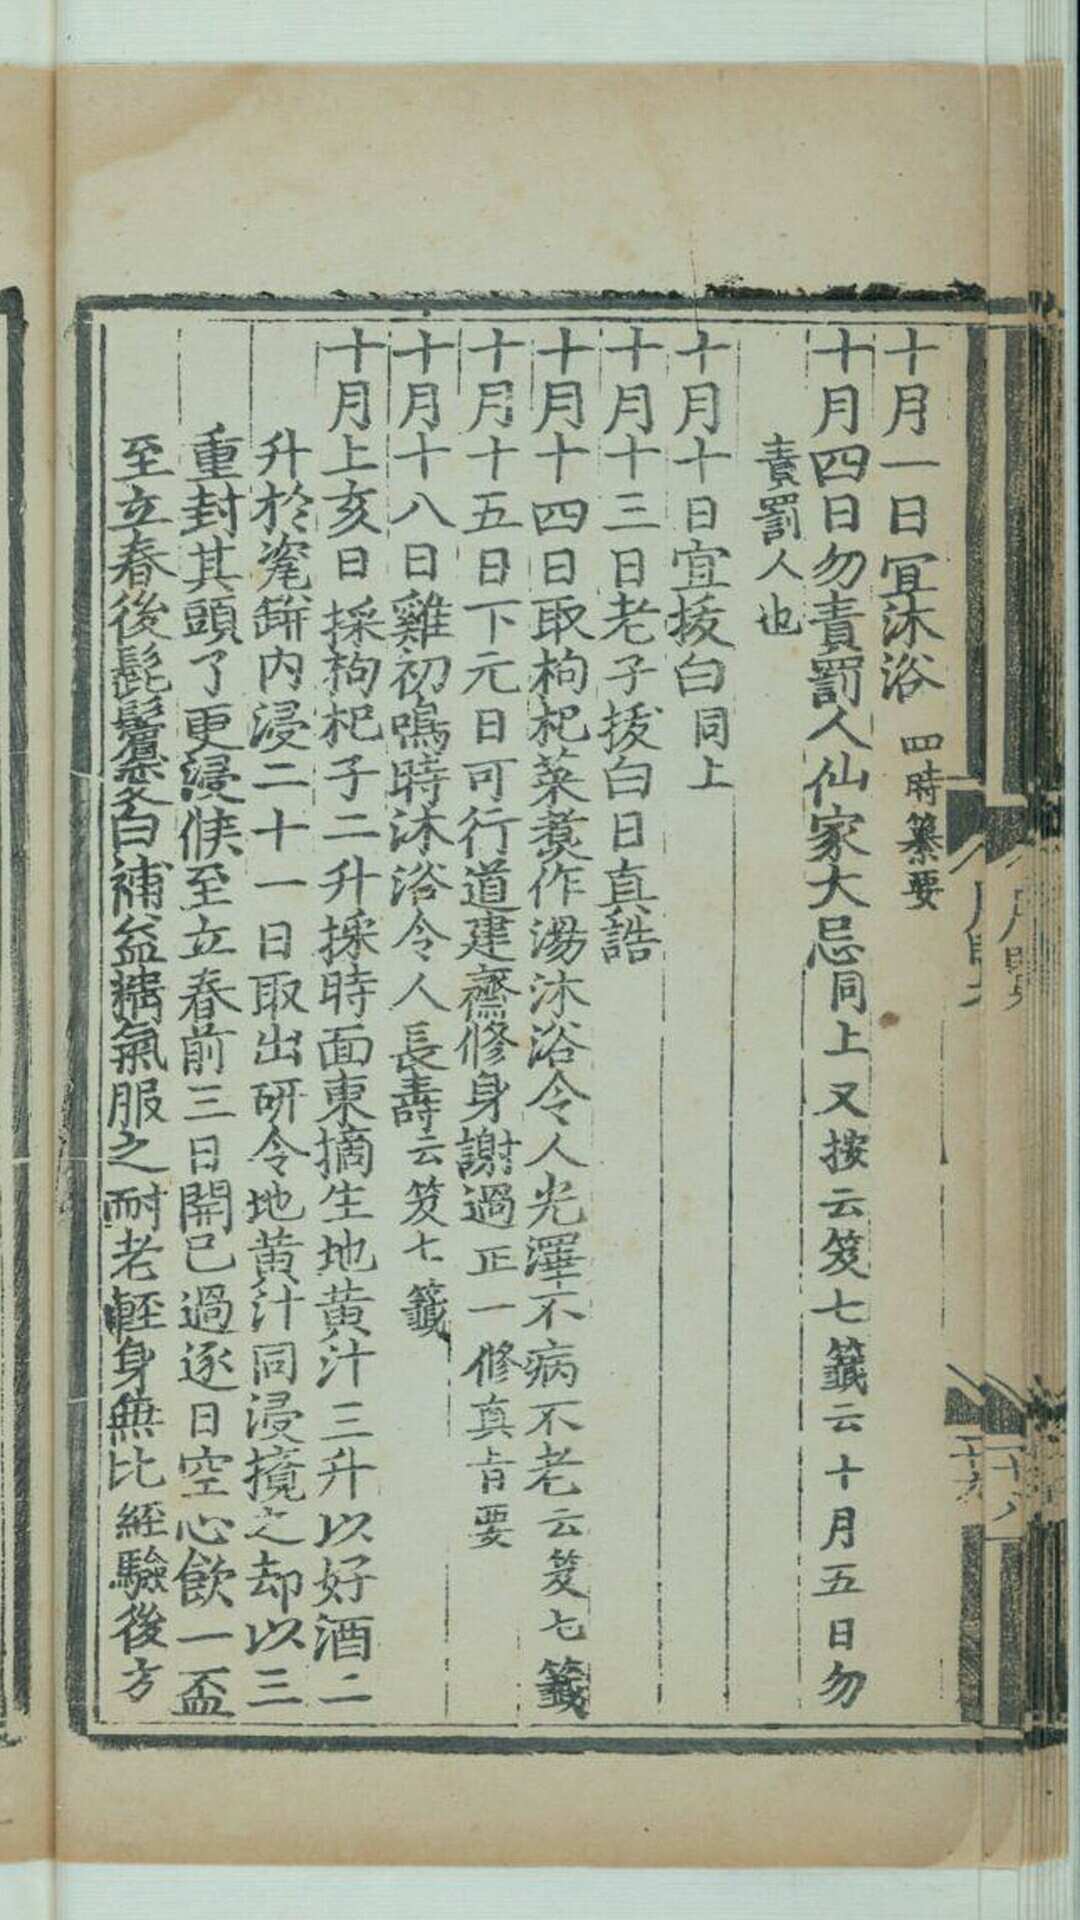 十月一日宜沐浴四時纂要
十月四日勿責罰人仙家大忌同上又按云笈七籤云十月五日勿
責罰人也
十月十日宜拔白同上
十月十三日老子拔白日真誥
十月十四日取枸杞菜煑作湯沐浴令人光澤不病不老云笈七籤
十月十五日下元日可行道建齋修身謝過正一修真旨要
十月十八日雞初鳴時沐浴令人長壽云笈七籤
十月上亥日採枸杞子二升採時面東摘生地黄汁三升以好酒二
升於瓷缾內浸二十一日取出研令地黄汁同浸攪之却以三
重封其頭了更浸候至立春前三日開已過逐日空心飲一盃
至立春後髭鬢變白補益精氣服之耐老輕身無比經驗後方